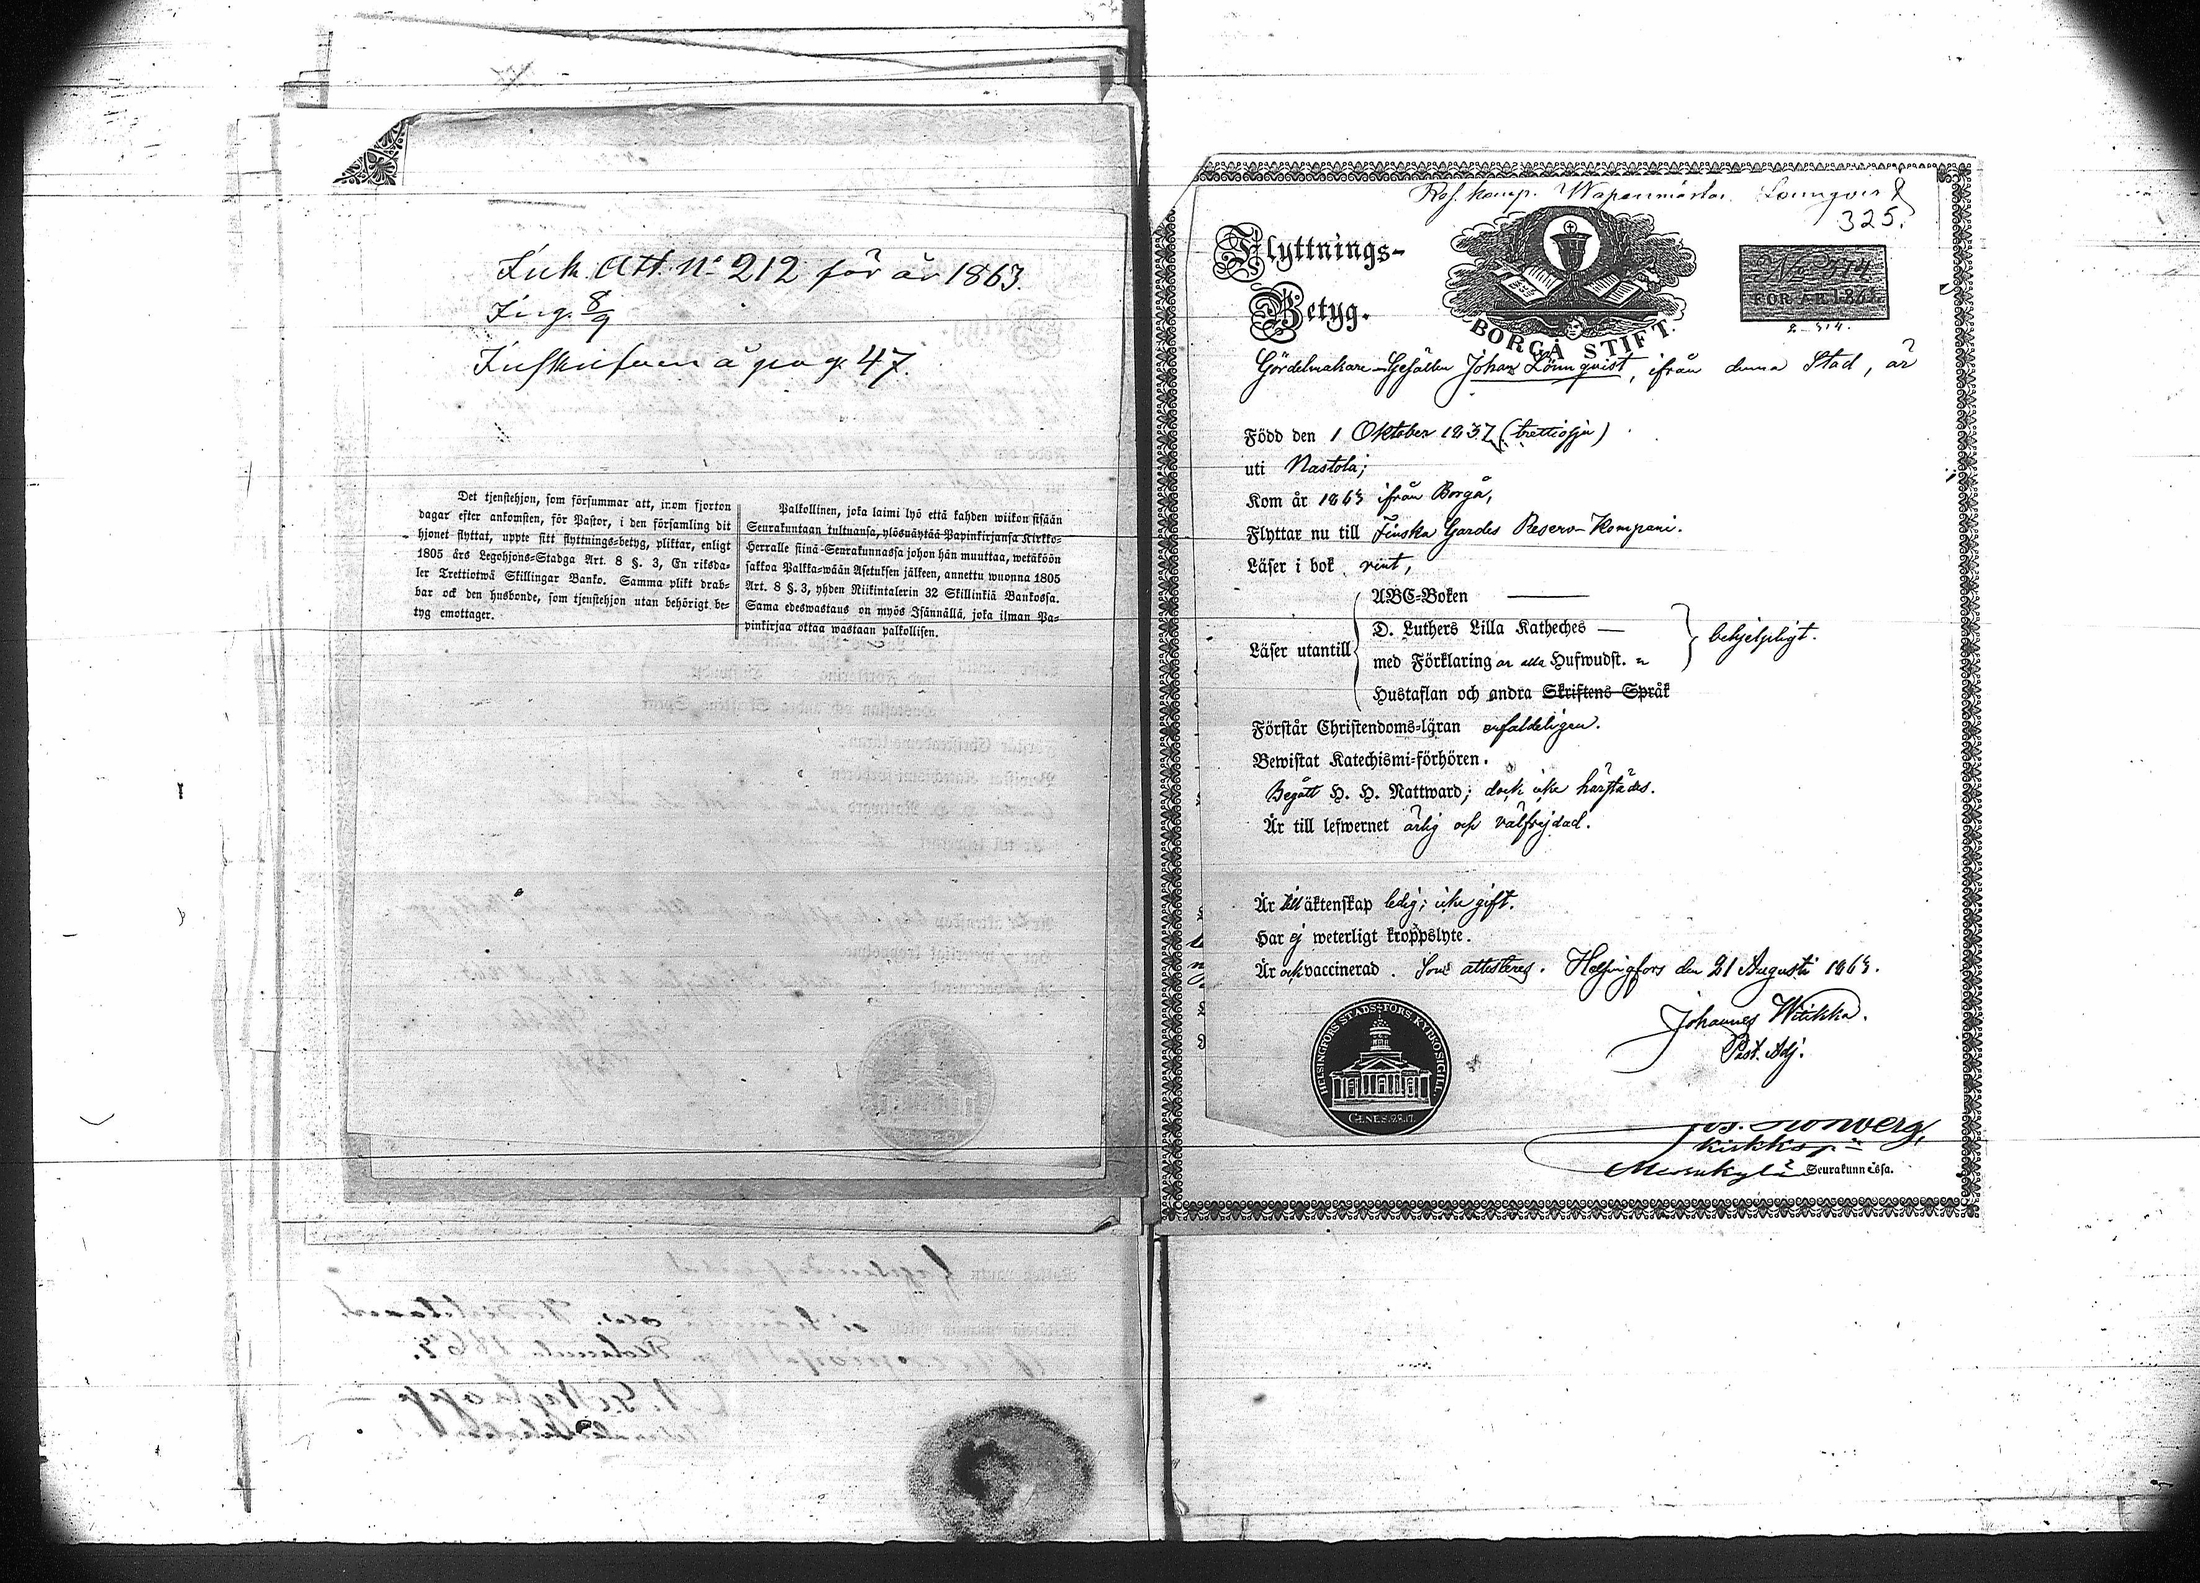 Ink. Att. No 212 för år 1863.
Ing. 8/9
Inskrifven å pag. 47.
Det tjenstehjon, som försummar att, inom fjorton
dagar efter ankomsten, för Pastor, i den församling dit
hjonet flyttat, uppte sitt flyttnings-betyg, pliktar, enligt
1805 års Legohjons-Stadga Art. 8 §. 3, En riksda-
ler Trettiotwå Skillingar Banko. Samma plikt drab-
bar ock den husbonde, som tjenstehjon utan behörigt be-
tyg emottager.
Palkollinen, joka laimi lyö että kahden wiikon sisään
Seurakuntaan tultuansa, ylösnäytää Papinkirjansa Kirkko-
Herralle siinä Seurakunnassa johon hän muuttaa, wetäköön
sakkoa Palkka-wään Asetuksen jälkeen, annettu wuonna 1805
Art. 8 §. 3, yhden Riikintalerin 32 Skillinkiä Bankossa.
Sama edeswastaus on myös Isännällä, joka ilman Pa-
pinkirjaa ottaa wastaan palkollisen.
Res. komp. Wapenmästar Lönnqvist
325.
Flyttnings-
Betyg.
BORGÅ STIFT.
No 514
FÖR ÅR 1863.
Gördelmakare-Gesällen Johan Lönnqvist, ifrån denna Stad, är
Född den 1 Oktober 1837 (trettiosju)
uti Nastola;
Kom år 1863 ifrån Borgå,
Flyttar nu till Finska Gardes Reserv-Kompani.
Läser i bok rent,
ABC-Boken
D. Luthers Lilla Katheches
Läser utantill
med Förklaring av alla Hufwudst.
behjelpligt.
Hustaflan och andra Skriftens Språk
Förstår Christendoms-läran enfaldeligen.
Bewistat Katechismi-förhören.
Begått H. H. Nattward; dock icke härstädes.
Är till lefwernet ärlig och välfrejdad.
Är till äktenskap ledig; icke gift.
Har ej weterligt kroppslyte.
Är ock vaccinerad. Som attesteras. Helsingfors den 21 Augusti 1863.
Johannes Witikka.
Past. Adj.
HELSINGFORS STADS-FÖRS. KYRKO SIGILL.
GENES. 28.17.
Messukylä Seurakunnassa.